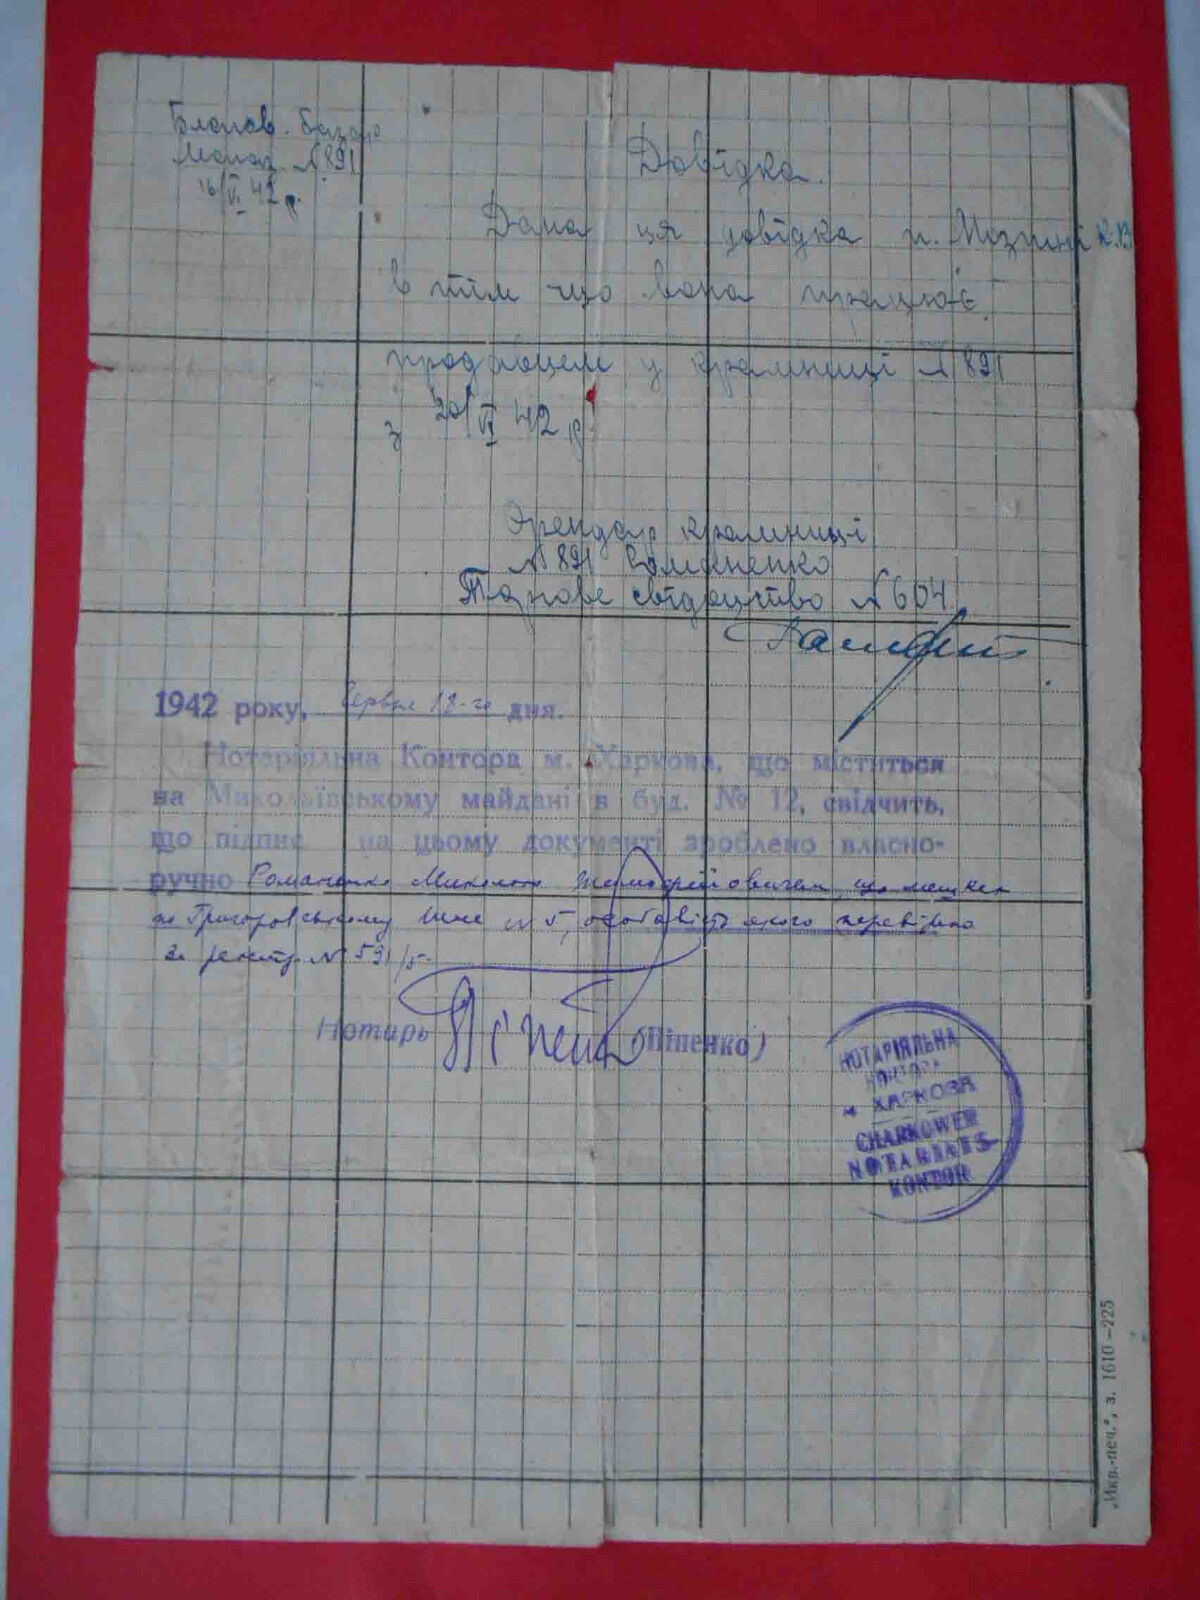 Благов. базар
Магаз. №891
16/VI 42 р.
Довідка.
Дана ця довідка п. Мозгині К.В.
в тім що вона працює
продавцем у крамниці №891
з 20/VI 42 р.
Орендар крамниці
№891 Романенко
свідоцтво №604
1942 року, Червня 18-го дня.
Нотаріяльна Контора м. Харкова, що міститься
на Миколаївському майдані в буд. № 12, свідчить,
що підпис на цьому документі зроблено власно-
ручно Романенко Миколою що мешкає
по Григоровському Шосе №5, особавість якого перевірено
За реєстр. №591/5.
Нотарь (Піпенко)
НОТАРІЯЛЬНА
КОНТОРА
м ХАРКОВА
CHARKOWER
NOTARIATS
KONTOR
„Икв.-печ.“, з. 1610-225